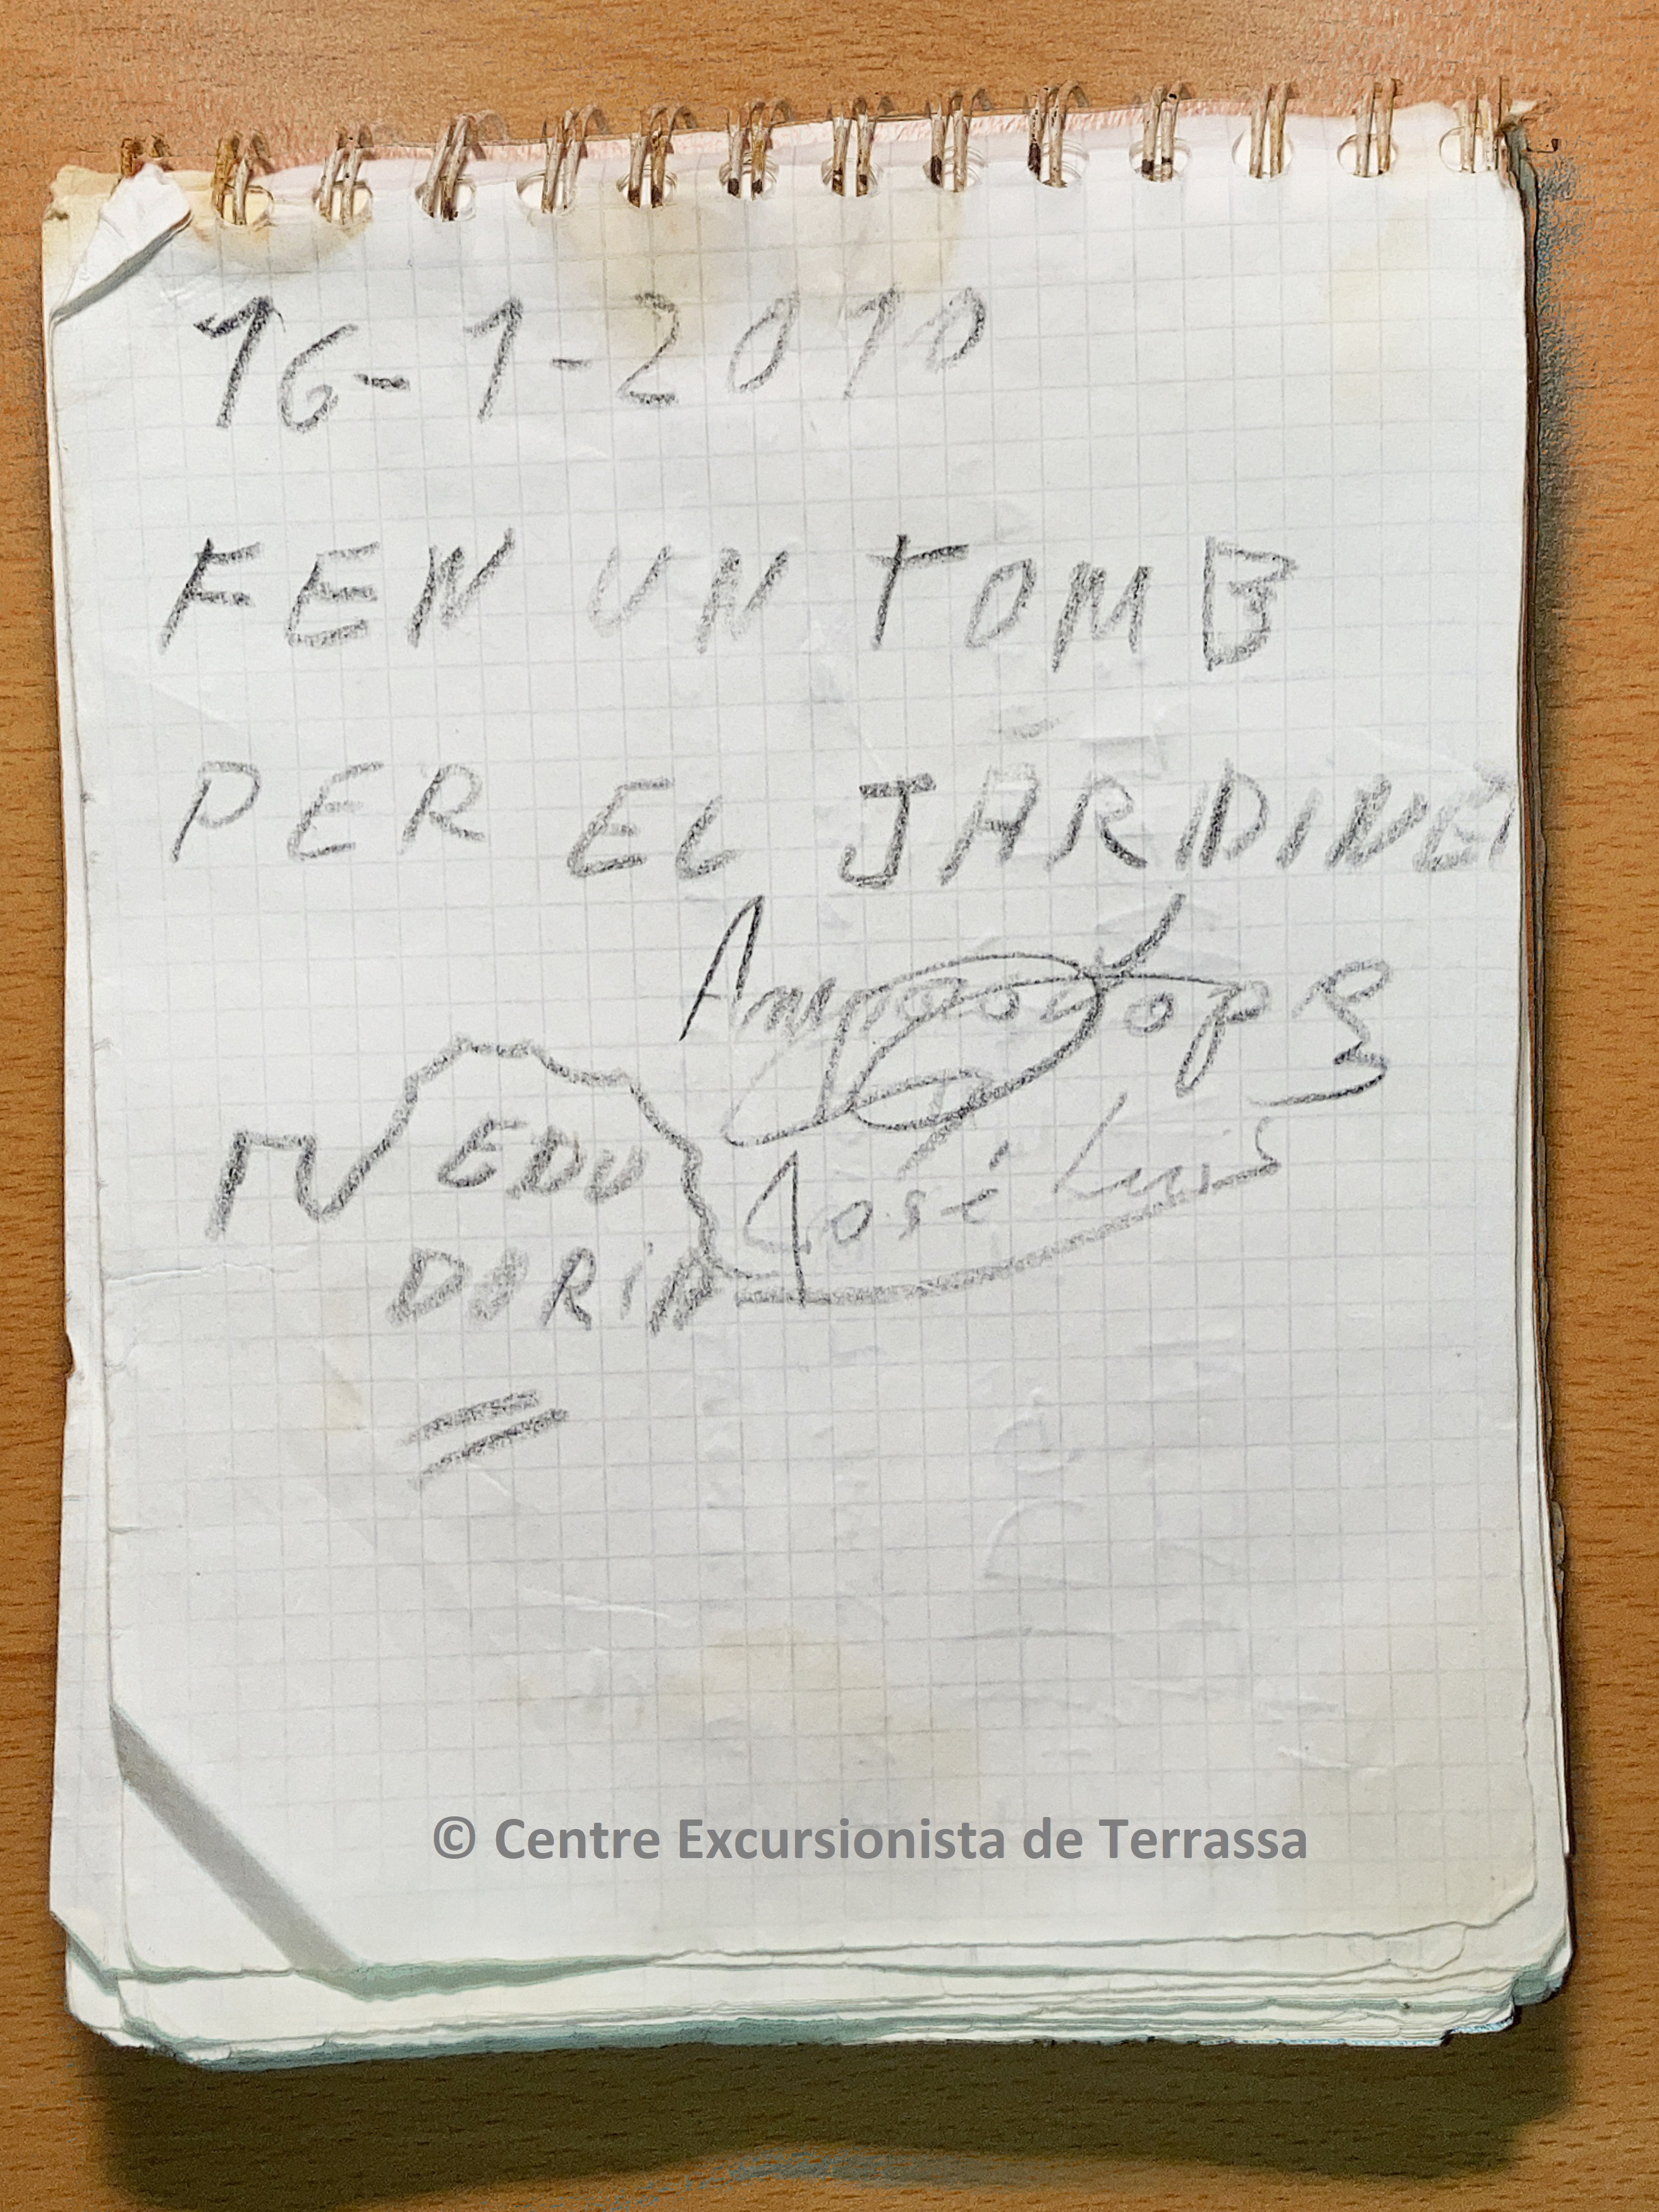 16-1-2010
FEN UN TOMB
PER EL JARDINET
EDU
DURAN
José Luis
© Centre Excursionista de Terrassa